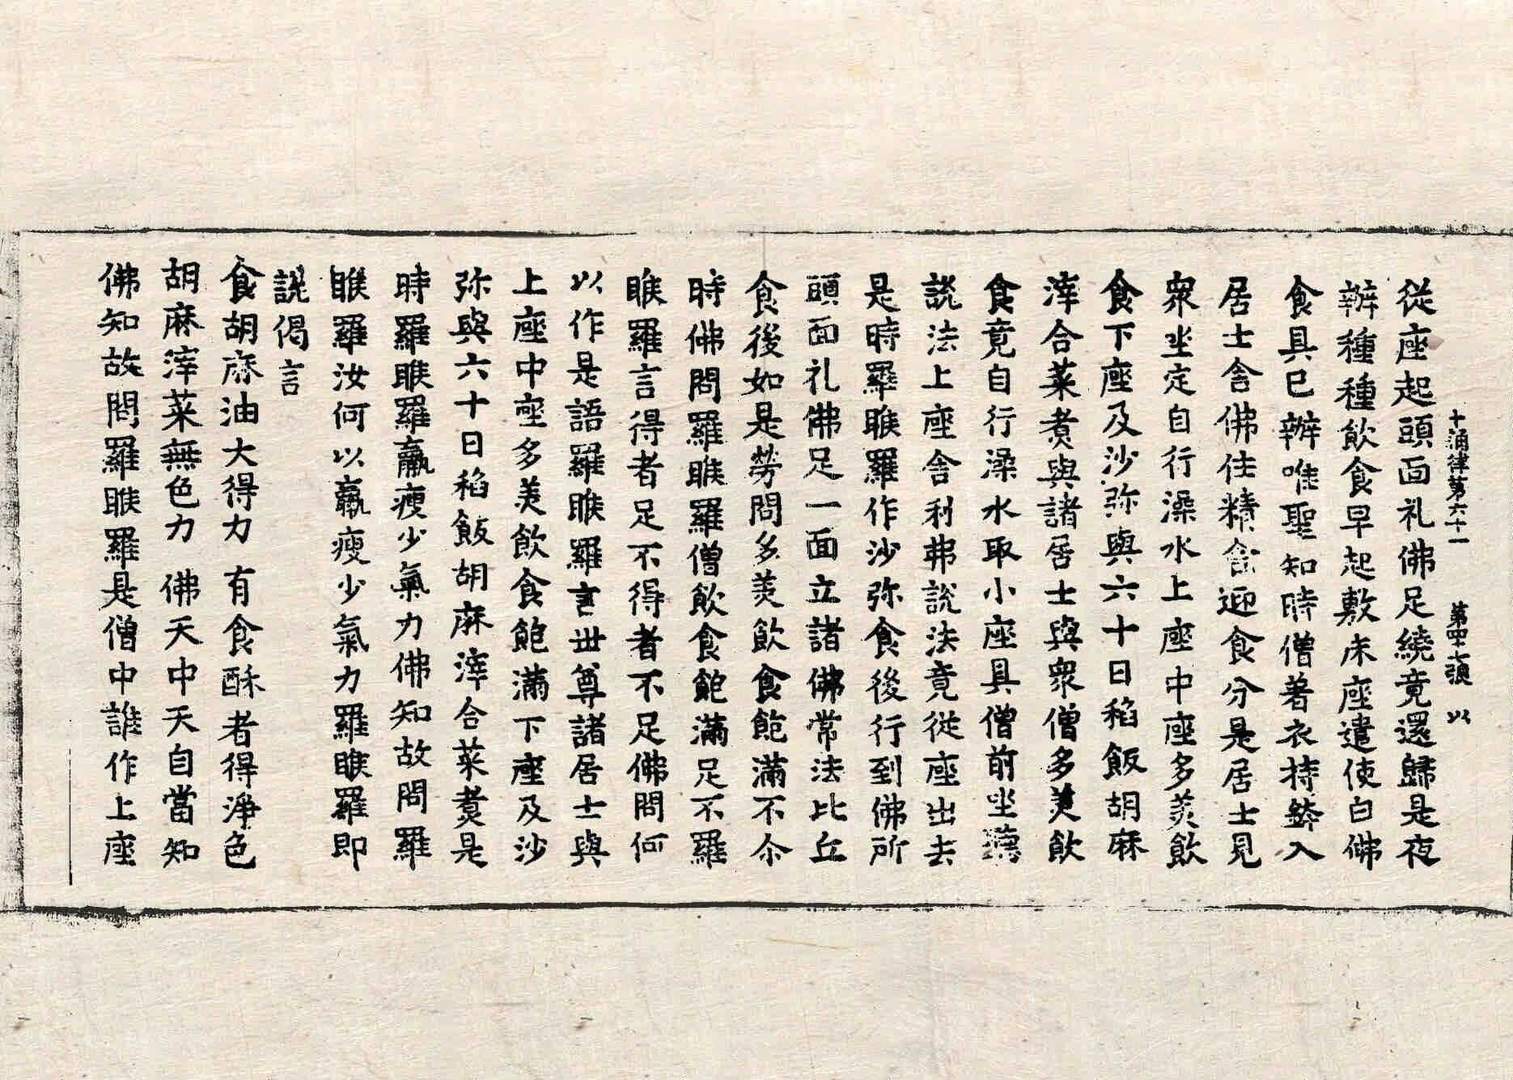 十誦律第六十一 第四十七張 以
從座起頭面礼佛足繞竟還歸是夜
辦種種飲食早起敷床座遣使白佛
食具已辦唯聖知時僧著衣持鉢入
居士舍佛住精舍迎食分是居士見
衆坐定自行澡水上座中座多美飲
食下座及沙弥與六十日稻飯胡麻
滓合菜煑與諸居士與衆僧多美飲
食竟自行澡水取小座具僧前坐聽
說法上座舍利弗說法竟從座出去
是時羅睺羅作沙弥食後行到佛所
頭面礼佛足一面立諸佛常法比丘
食後如是勞問多美飲食飽滿不尒
時佛問羅睺羅僧飲食飽滿足不羅
睺羅言得者足不得者不足佛問何
以作是語羅睺羅言世尊諸居士與
上座中座多美飲食飽滿下座及沙
弥與六十日稻飯胡麻滓合菜煑是
時羅睺羅羸瘦少氣力佛知故問羅
睺羅汝何以羸瘦少氣力羅睺羅即
說偈言
食胡麻油大得力 有食酥者得淨色
胡麻滓菜無色力 佛天中天自當知
佛知故問羅睺羅是僧中誰作上座